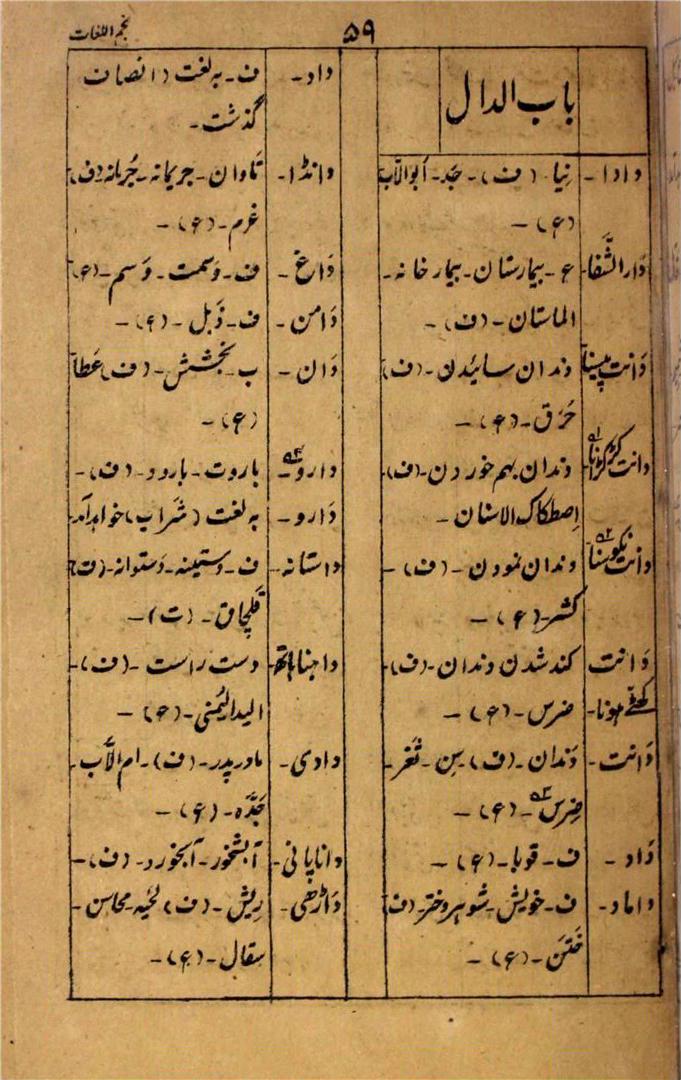 نجم اللغات
۵۹
باب الدال
دادا - نیا - (ف) - جد - ابوالاب
(ع) -
دَارالشَّفا - ع - بیمارستان - بیمار خانہ -
الماستان - (ف) -
دَانت پیسنا دندان سائیدن - (ف)
حَرَق - (ع) -
دانت کڑکڑانا دندان بہم خوردن - (ف)
اِصطکاک الاسنان -
دانت نکوسنا دندان نمودن - (ف) -
کشر - (ع) -
دَانت کند شدن دندان - (ف) -
کھٹے ہونا - ضرس - (ع) -
دَانت - دَندان - (ف) سِن - ثَغر -
ضِرس - (ع) -
دَاد - ف - قوبا - (ع) -
داماد - ف - خویش - شوہر دختر (ف)
خَتَن - (ع) -
داد - ف - بہ لغت (انصاف
گذشت -
دانڈا - تاوان - جریمانہ - جُرمانہ (ف)
غرم - (ع) -
دَاغ - ف - وَسمت - وَسم - (ع)
دَامن - ف - ذَیل - (ع) -
دَان - ب - بخشش - (ف) عَطا
(ع) -
دارو - باروت - بارود - (ف) -
دَارو - بہ لغت (شَراب) خواہد آمد -
داستانہ - ف - دستینہ - دَستوانہ - (ت)
قلچاق - (ت) -
داہنا ہاتھ - دست راست - (ف) -
الید الیُمنیٰ - (ع) -
دادی - مادر پدر - (ف) - ام الاَب -
جَدَّہ - (ع) -
دانا پانی - آبشخور - آبخورد - (ف) -
دَاڑھی - رِیش - (ف) لحیہ - محاسن -
سِقال - (ع) -